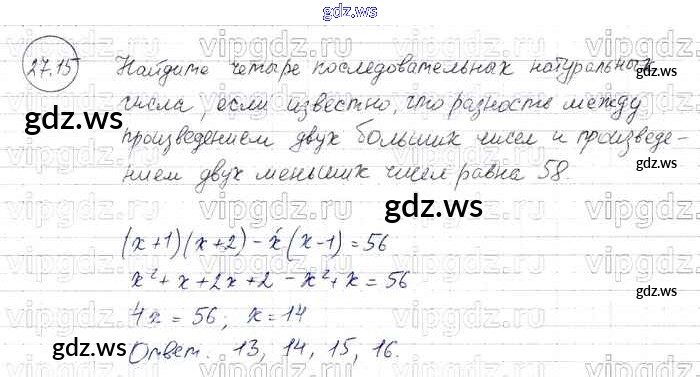 gdz.ws
27.15 Найдите четыре последовательных натуральных
числа, если известно, что разность между
произведением двух больших чисел и произведе-
нием двух меньших чисел равна 58.
(x+1)(x+2) - x(x-1) = 56
x² + x + 2x + 2 - x² + x = 56
4x = 56; x = 14
Ответ. 13, 14, 15, 16.
gdz.ws
gdz.ws
gdz.ws
gdz.ws
gdz.ws
gdz.ws
vipgdz.ws
vipgdz.ws
vipgdz.ws